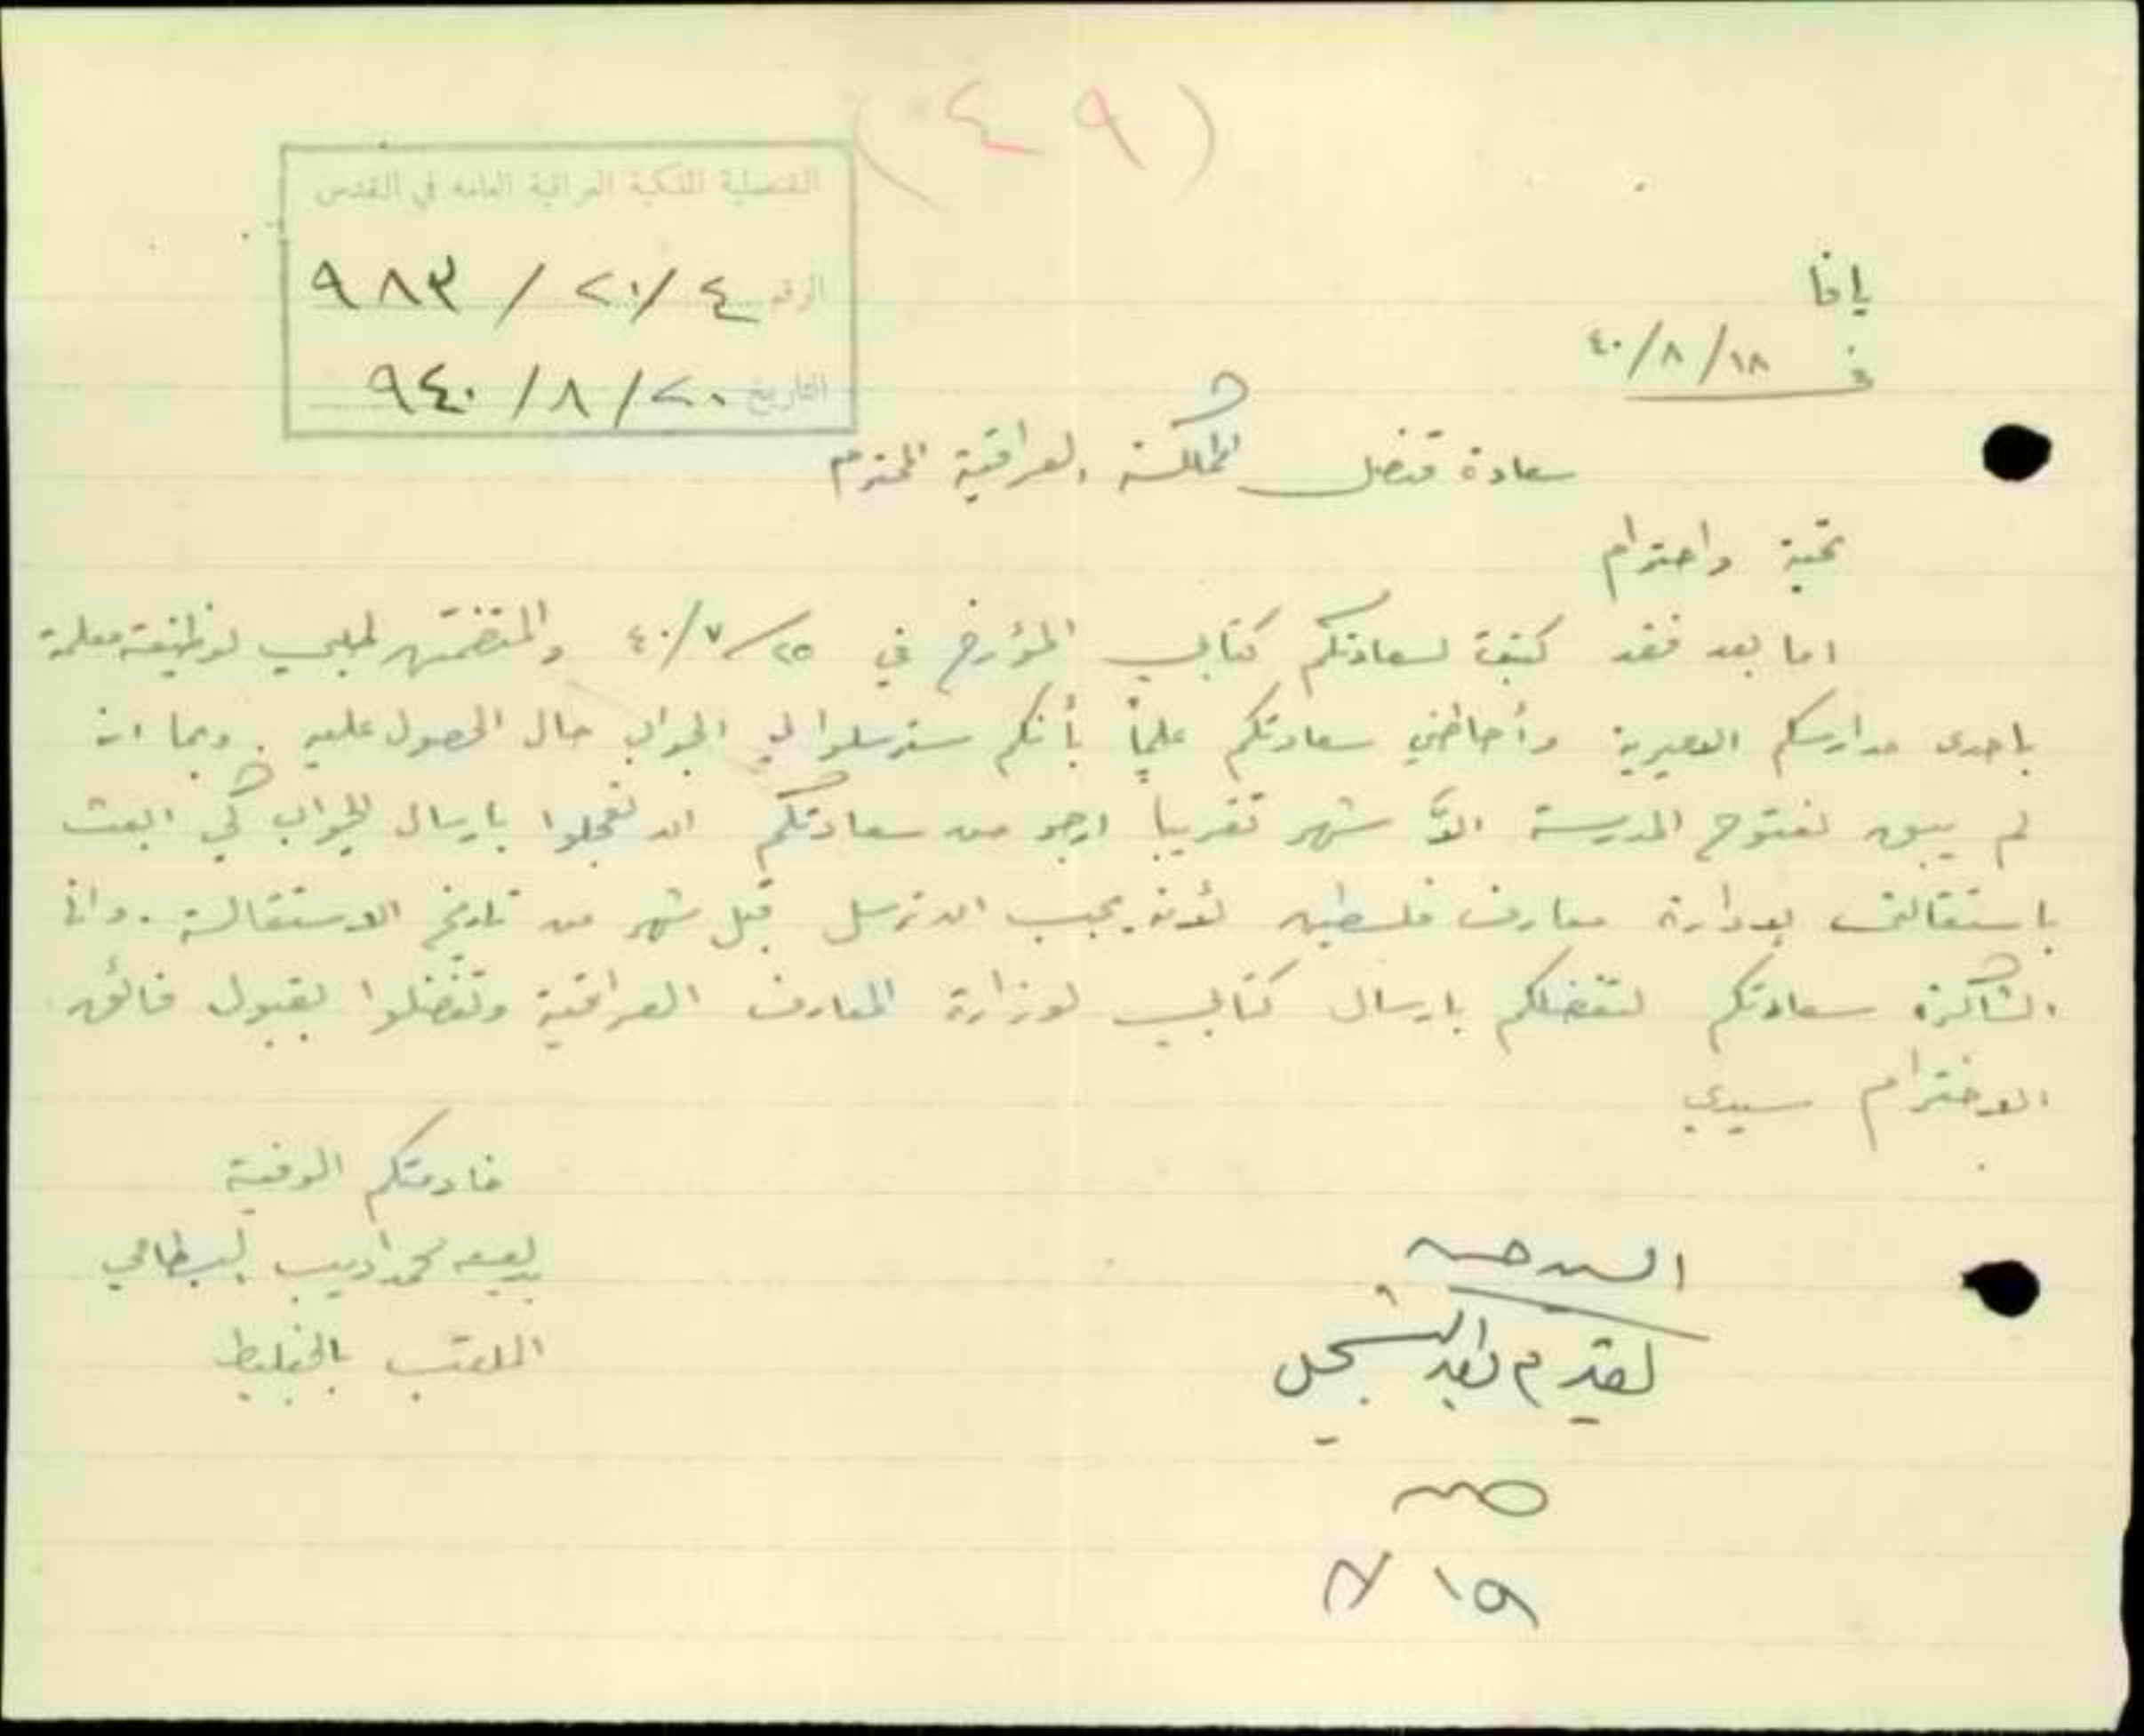 (٤٩)
القنصلية الملكية العراقية العامة في القدس
الرقم ٩٨٣/٢٠/٤
التاريخ ٩٤٠/٨/٢٠
يافا
في ٤٠/٨/١٨
سعادة قنصل المملكة العراقية المحترم
تحية واحترام
اما بعد فقد كتبت لسعادتكم كتابي المؤرخ في ٤٠/٧/٢٥ والمتضمن طلبي لوظيفة معلمة
باحدى مدارسكم الاميرية وأحاطني سعادتكم علماً بأنكم سترسلوا لي الجواب حال الحصول عليه . وبما ان
لم يبق لفتوح المدرسة الاّ شهر تقريبا ارجو من سعادتكم ان تعجلوا بارسال الجواب كي ابعث
باستقالتي لادارة معارف فلسطين لأنه يجب ان ترسل قبل شهر من تاريخ الاستقالة . واني
الشاكرة سعادتكم لتفضلكم بارسال كتابي لوزارة المعارف العراقية وتفضلوا بقبول فائق
الاحترام سيدي
خادمتكم الوفية
بديعه محمد اديب البسطامي
الملقب بالخفليط
السيد حسن
لتقديم بعد التسجيل